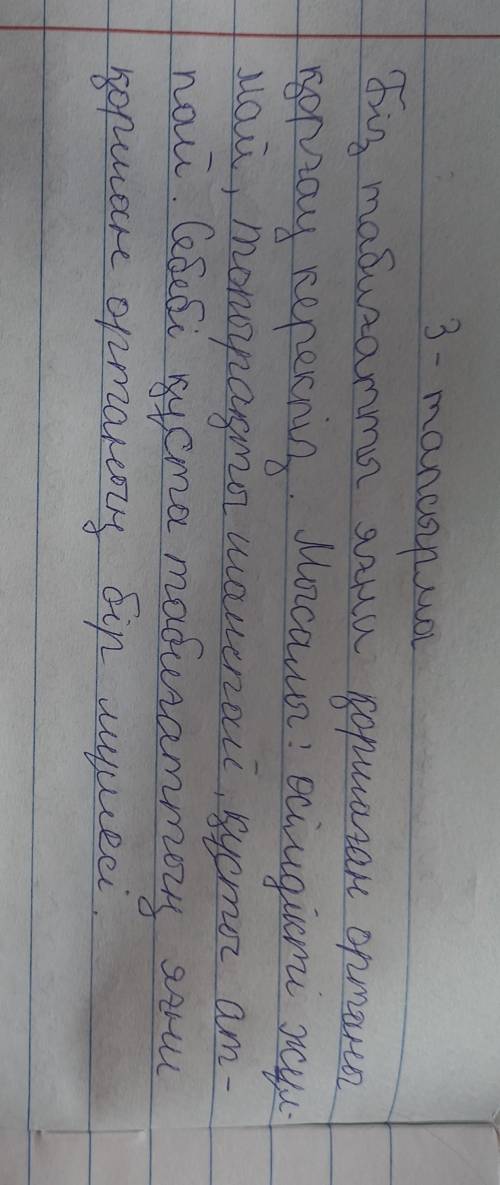 3-тапсырма
Біз табиғатты яғни қоршаған ортаны
қорғау керекпіз. Мысалы: өсімдікті жұл-
май, топырақты таптай, құсты ат-
пай. Себебі құста табиғаттың яғни
қоршаған ортаның бір мүшесі.